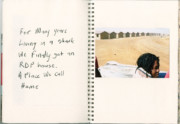 For Many years
Living in a shack
We finally got an
RDP house.
A Place We call
Home